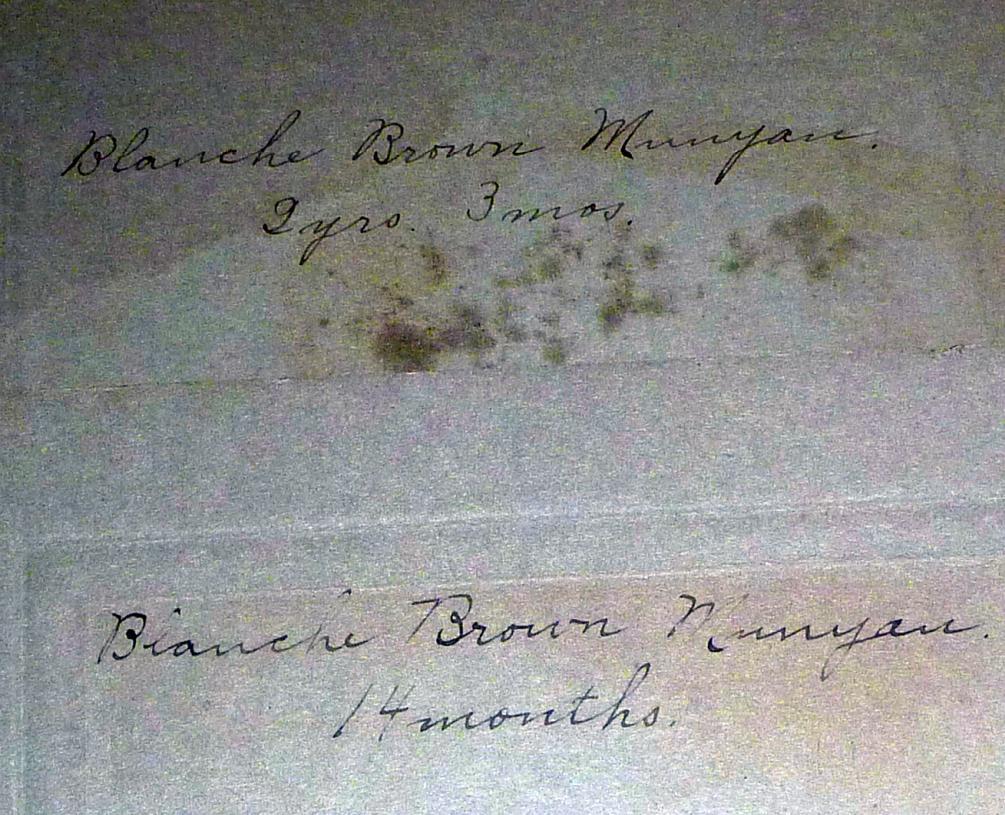 Blanche Brown Munyan.
2yrs. 3mos.
Blanche Brown Munyan.
14 months.